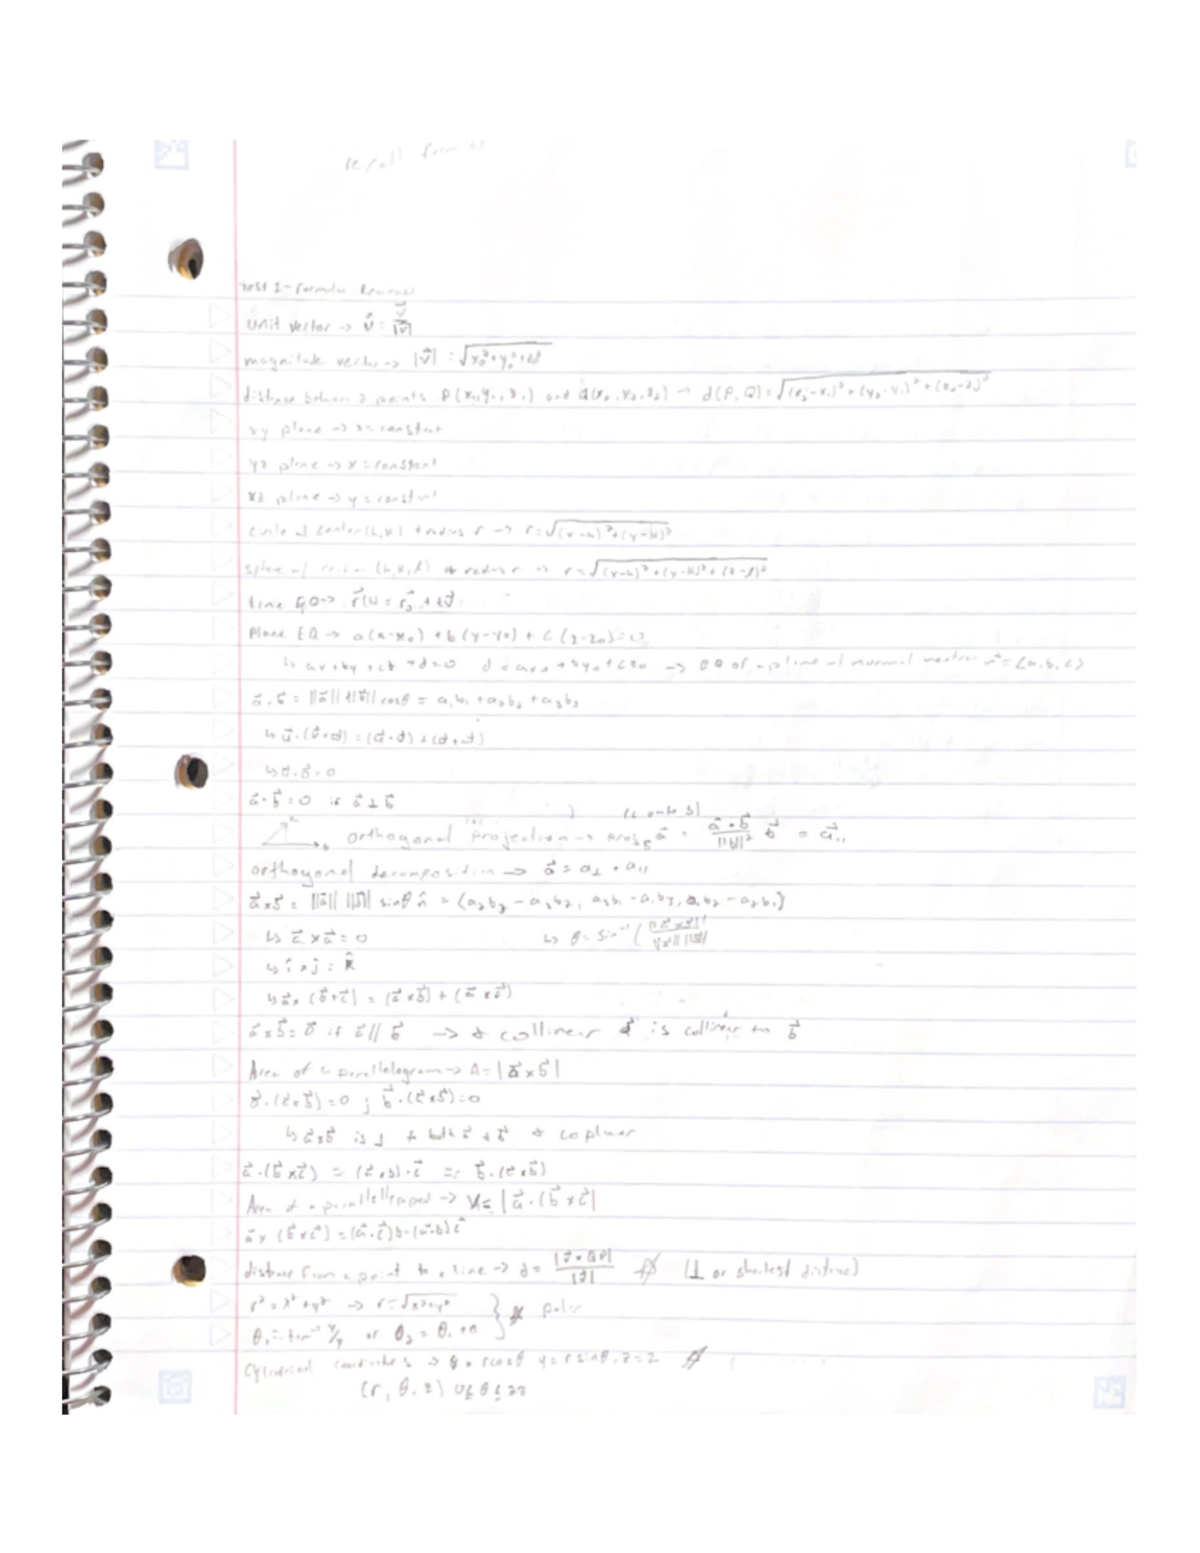 recall formulas
Test 1 - Formulas
unit vector → v̂ = v⃗/|v⃗|
magnitude vector → |v⃗| = √(x₀²+y₀²+z₀²)
distance between 2 points P(x₁,y₁,z₁) and Q(x₂,y₂,z₂) → d(P,Q) = √((x₂-x₁)²+(y₂-y₁)²+(z₂-z₁)²)
xy plane → z = constant
yz plane → x = constant
xz plane → y = constant
circle w/ center (h,k) + radius r → r = √((x-h)²+(y-k)²)
w/ center (h,k,l) radius r → r = √((x-h)²+(y-k)²+(z-l)²)
EQ → r⃗(t) = r⃗₀ + tv⃗
Plane EQ → a(x-x₀) + b(y-y₀) + c(z-z₀) = 0
↳ ax+by+cz+d=0 d = ax₀+by₀+cz₀ → EQ of a plane w/ normal vector n⃗ = ⟨a,b,c⟩
a⃗·b⃗ = ||a⃗|| ||b⃗|| cosθ = a₁b₁+a₂b₂+a₃b₃
a⃗·b⃗ = 0 if a⃗ ⊥ b⃗
(a onto b)
orthogonal projection → proj_b a⃗ = (a⃗·b⃗)/||b||² b⃗ = a⃗₁₁
orthogonal decomposition → a⃗ = a⊥ + a₁₁
a⃗×b⃗ = ||a⃗|| ||b⃗|| sinθ n̂ =
↳ a⃗×a⃗ = 0 ↳ θ = sin⁻¹
↳ î×ĵ = k̂
↳ a⃗×(b⃗+c⃗) = (a⃗×b⃗)+(a⃗×c⃗)
a⃗×b⃗ = 0⃗ if a⃗ // b⃗ → * collinear a⃗ is collinear to b⃗
Area of a parallelogram → A = |a⃗×b⃗|
a⃗·(a⃗×b⃗)=0 ; b⃗·(a⃗×b⃗)=0
↳ a⃗×b⃗ is ⊥ to both a⃗ + b⃗ * coplanar
a⃗·(b⃗×c⃗) = (a⃗×b)·c⃗ = b⃗·(c⃗×a⃗)
Area of a parallellepiped → V = |a⃗·(b⃗×c⃗)|
a⃗×(b⃗×c⃗) = (a⃗·c⃗)b-(a⃗·b)c⃗
distance from a point to a line → d = |v⃗×QP|/|v⃗| (⊥ or shortest distance)
r² = x²+y² → r = √(x²+y²) } * polar
θ₁ = tan⁻¹ or θ₂ = θ₁+π
Cylindrical coordinates → x = rcosθ y = rsinθ, z = z
(r, θ, z) 0≤θ≤2π